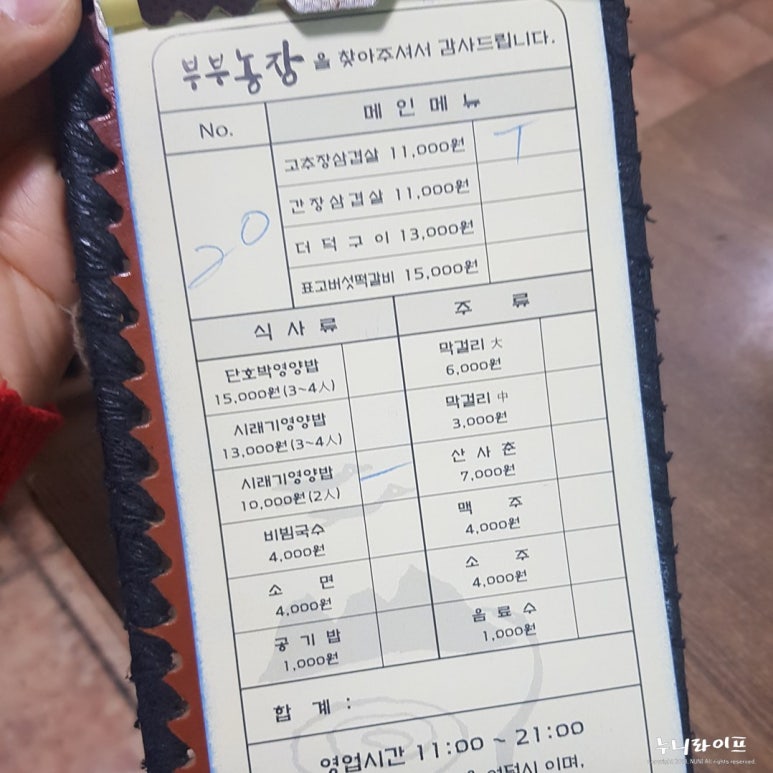 부부농장을 찾아주셔서 감사드립니다.
No.
메인메뉴
20
고추장삼겹살 11,000원
간장삼겹살 11,000원
더덕구이 13,000원
표고버섯떡갈비 15,000원
식사류
단호박영양밥
15,000원(3~4人)
시래기영양밥
13,000원(3~4人)
시래기영양밥
10,000원(2人)
비빔국수
4,000원
소 면
4,000원
공기밥
1,000원
주 류
막걸리 大
6,000원
막걸리 中
3,000원
산사춘
7,000원
맥 주
4,000원
소 주
4,000원
음료수
1,000원
합 계 :
영업시간 11:00 ~ 21:00
이며,
누니라이프